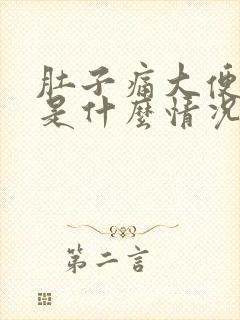 肚子痛大便
是什麼情况
第二言